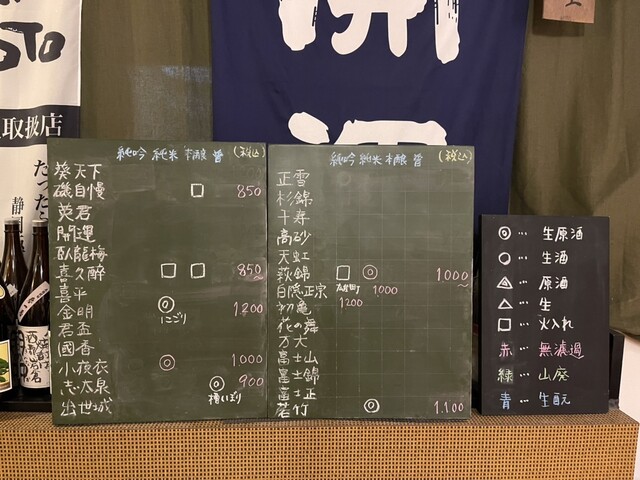 取扱店
純吟 純米 本醸 普 (税込)
葵天下
磯自慢 □ 850
英君
開運
臥龍梅
喜久酔 □ □ 850〜
喜平
金明 ◎ 1200
にごり
君盃
國香
小夜衣 ◎ 1000
志太泉 ◎ 900
出世城
純吟 純米 本醸 普 (税込)
正雪
杉錦
千寿
高砂
天虹
萩錦 □ ◎ 1000〜
白隠正宗 1000
初亀 1200
花の舞
万大
富士山
富士錦
富士正
若竹 ◎ 1.100
◎ … 生原酒
○ … 生酒
… 原酒
△ … 生
□ … 火入れ
赤 … 無濾過
緑 … 山廃
青 … 生酛